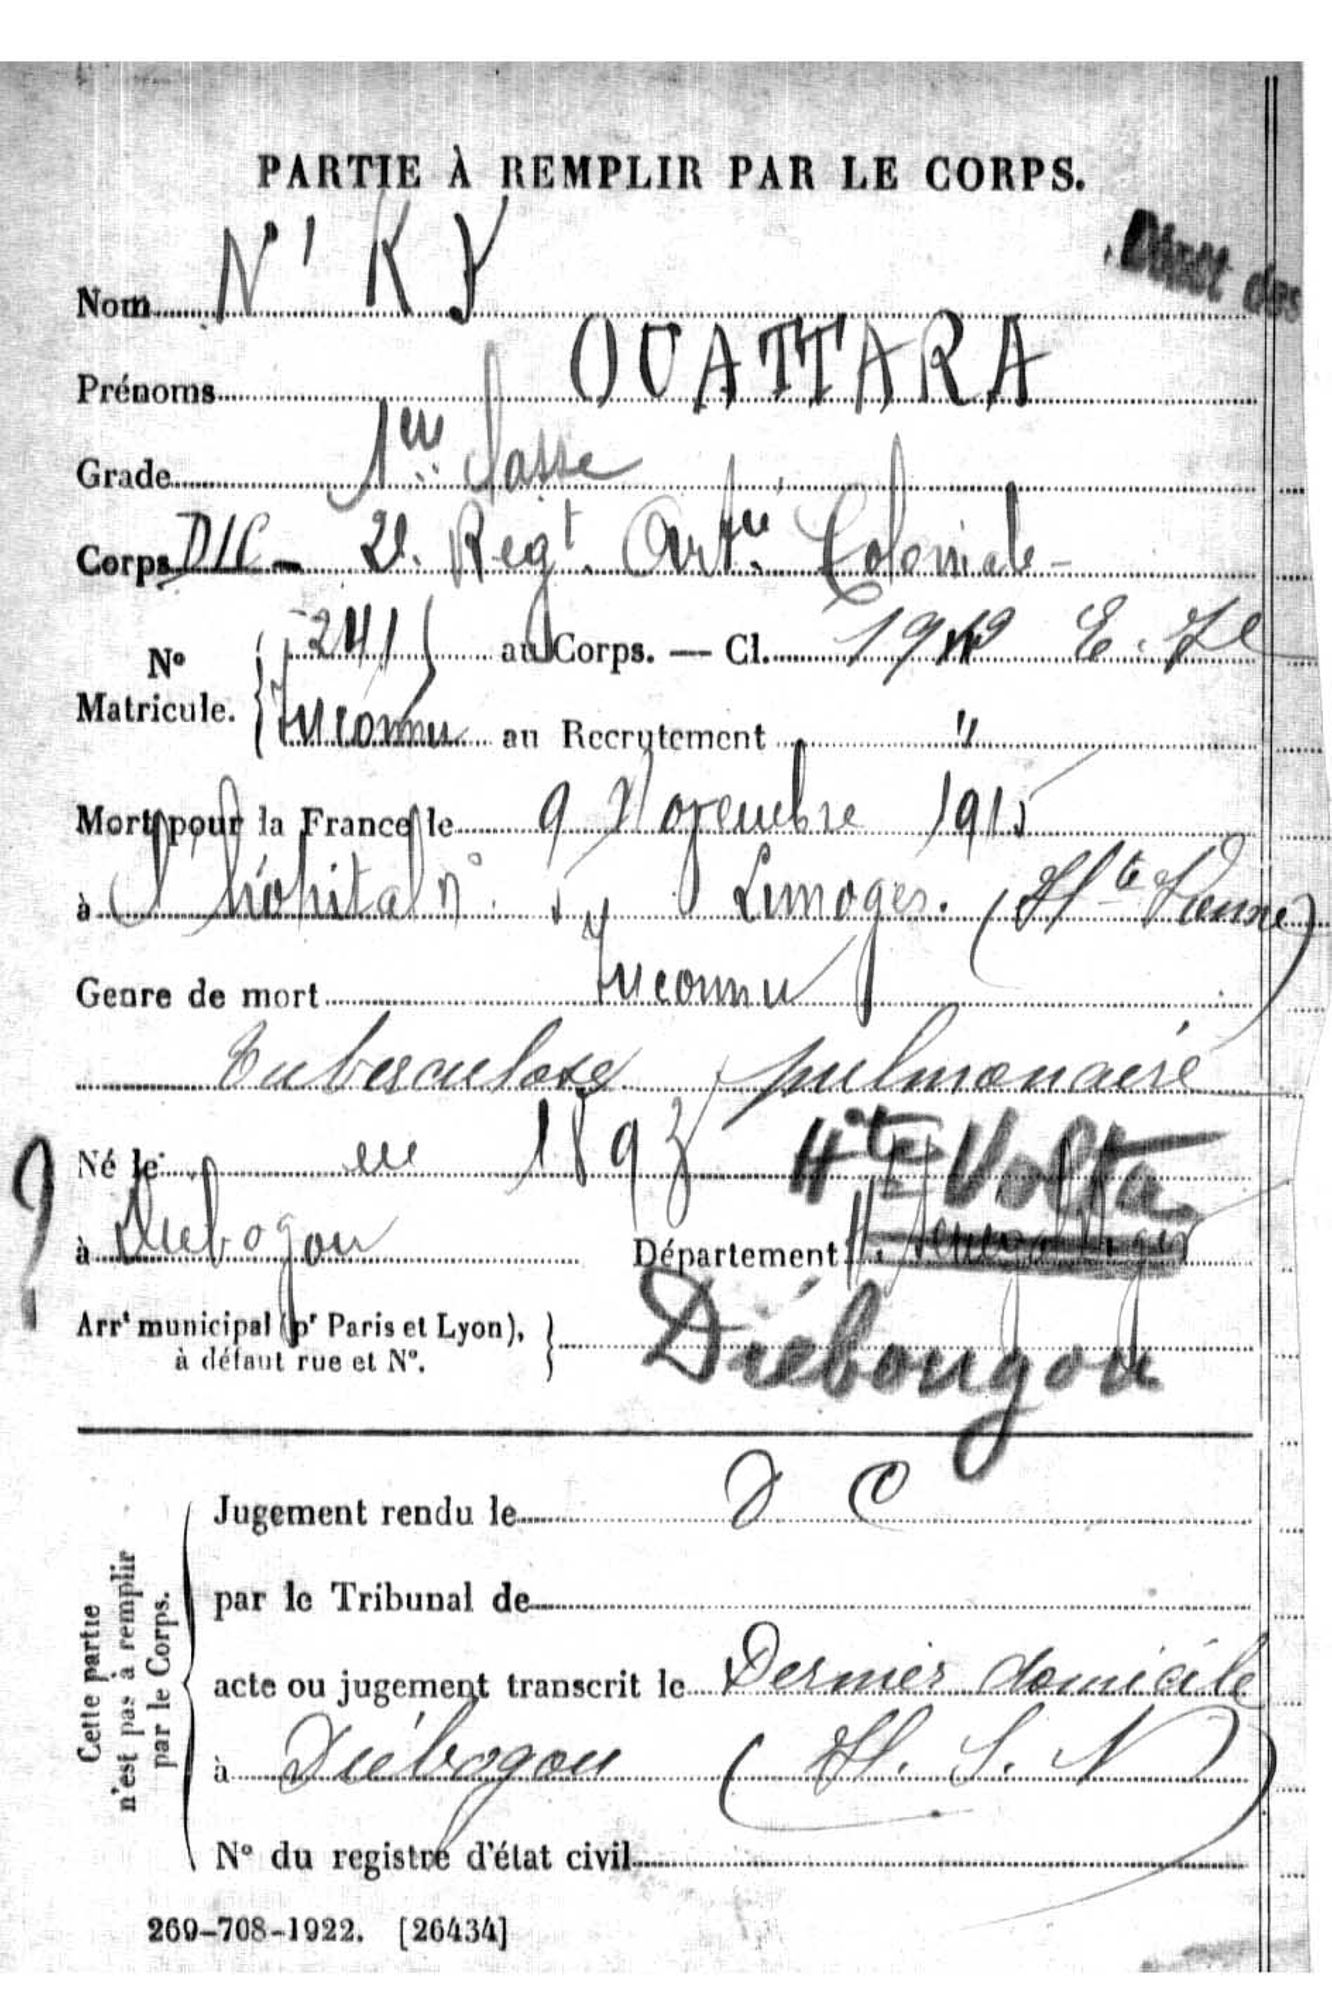 PARTIE À REMPLIR PAR LE CORPS.
Dépôt des
Nom N' KY
Prénoms OUATTARA
Grade 1ere classe
Corps DIC - 2e. Regt. Artie Coloniale -
N° Matricule. { 241 au Corps. — Cl. 1912 E.
Inconnu au Recrutement "
Mort pour la France le 9 Novembre 1915
à l'hôpital n° Limoges. (Hte Vienne)
Genre de mort Inconnu
Tuberculose pulmonaire
? Né le en 1893 Hte Volta
à Diebogou Département Ht Senegal Niger
Arrt municipal (pr Paris et Lyon), à défaut rue et N°. } Diébougou
Cette partie n'est pas à remplir par le Corps.
Jugement rendu le D C
par le Tribunal de
acte ou jugement transcrit le Dernier domicile
à Diébogou (H. S. N)
N° du registre d'état civil
269-708-1922. [26434]